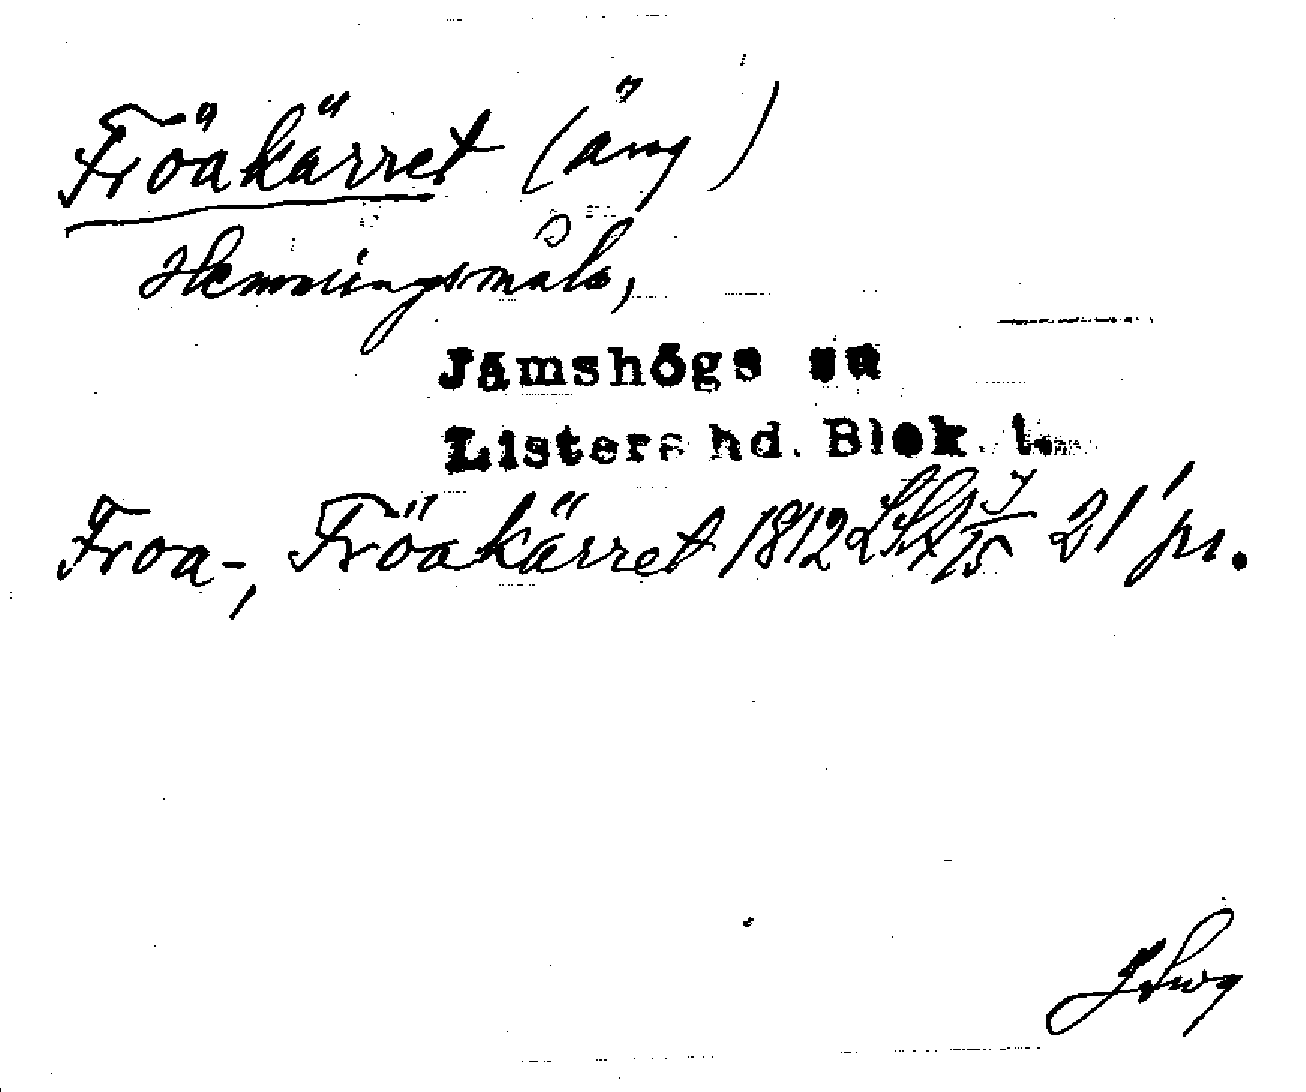 Fröakärret (äng)
Hemmingsmåla,
Jämshögs sn
Listers hd. Blek. l.
Froa-, Fröakärret 1812 21 pr.